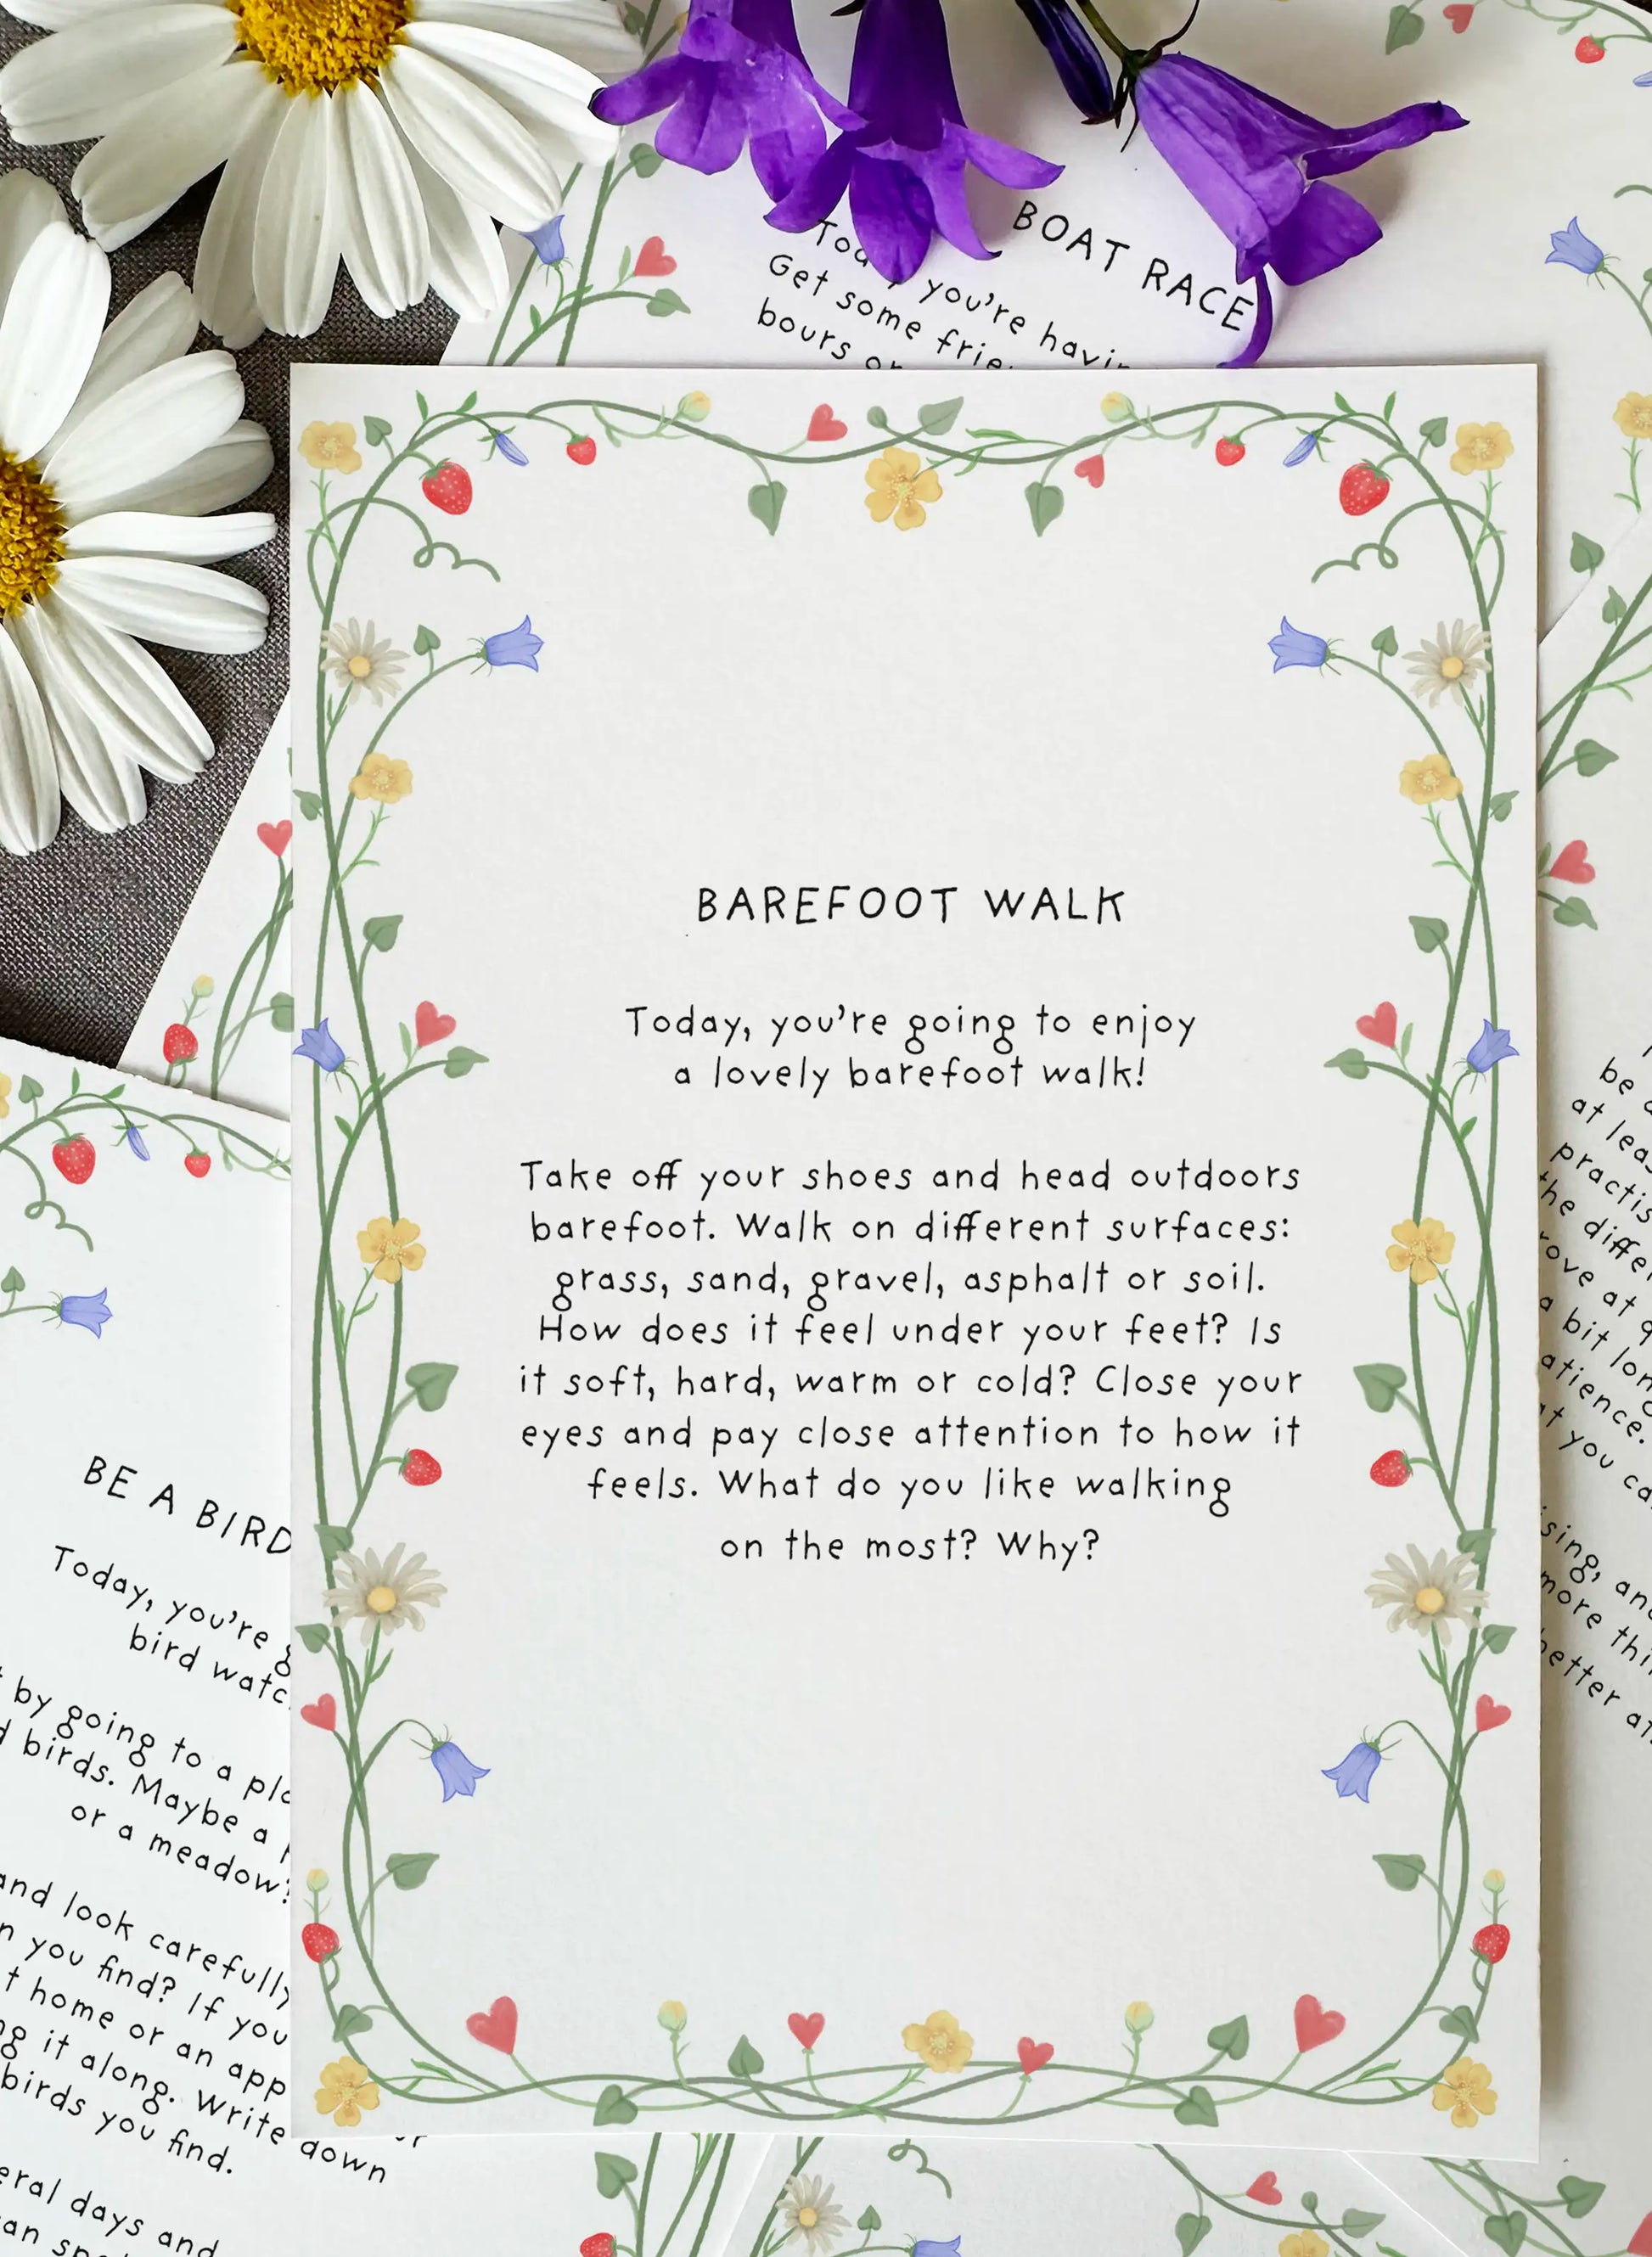 BOAT RACE
you're
Get some
bours
BAREFOOT WALK
Today, you're going to enjoy
a lovely barefoot walk!
Take off your shoes and head outdoors
barefoot. Walk on different surfaces:
grass, sand, gravel, asphalt or soil.
How does it feel under your feet? Is
it soft, hard, warm or cold? Close your
eyes and pay close attention to how it
feels. What do you like walking
on the most? Why?
BE A BIRD
Today, you're
bird
by going to a
birds. Maybe a
or a meadow?
and look carefully
you find? If you
home or an app
it along. Write down
birds you find.
days and
be
at
the
at
a bit
you
more
better